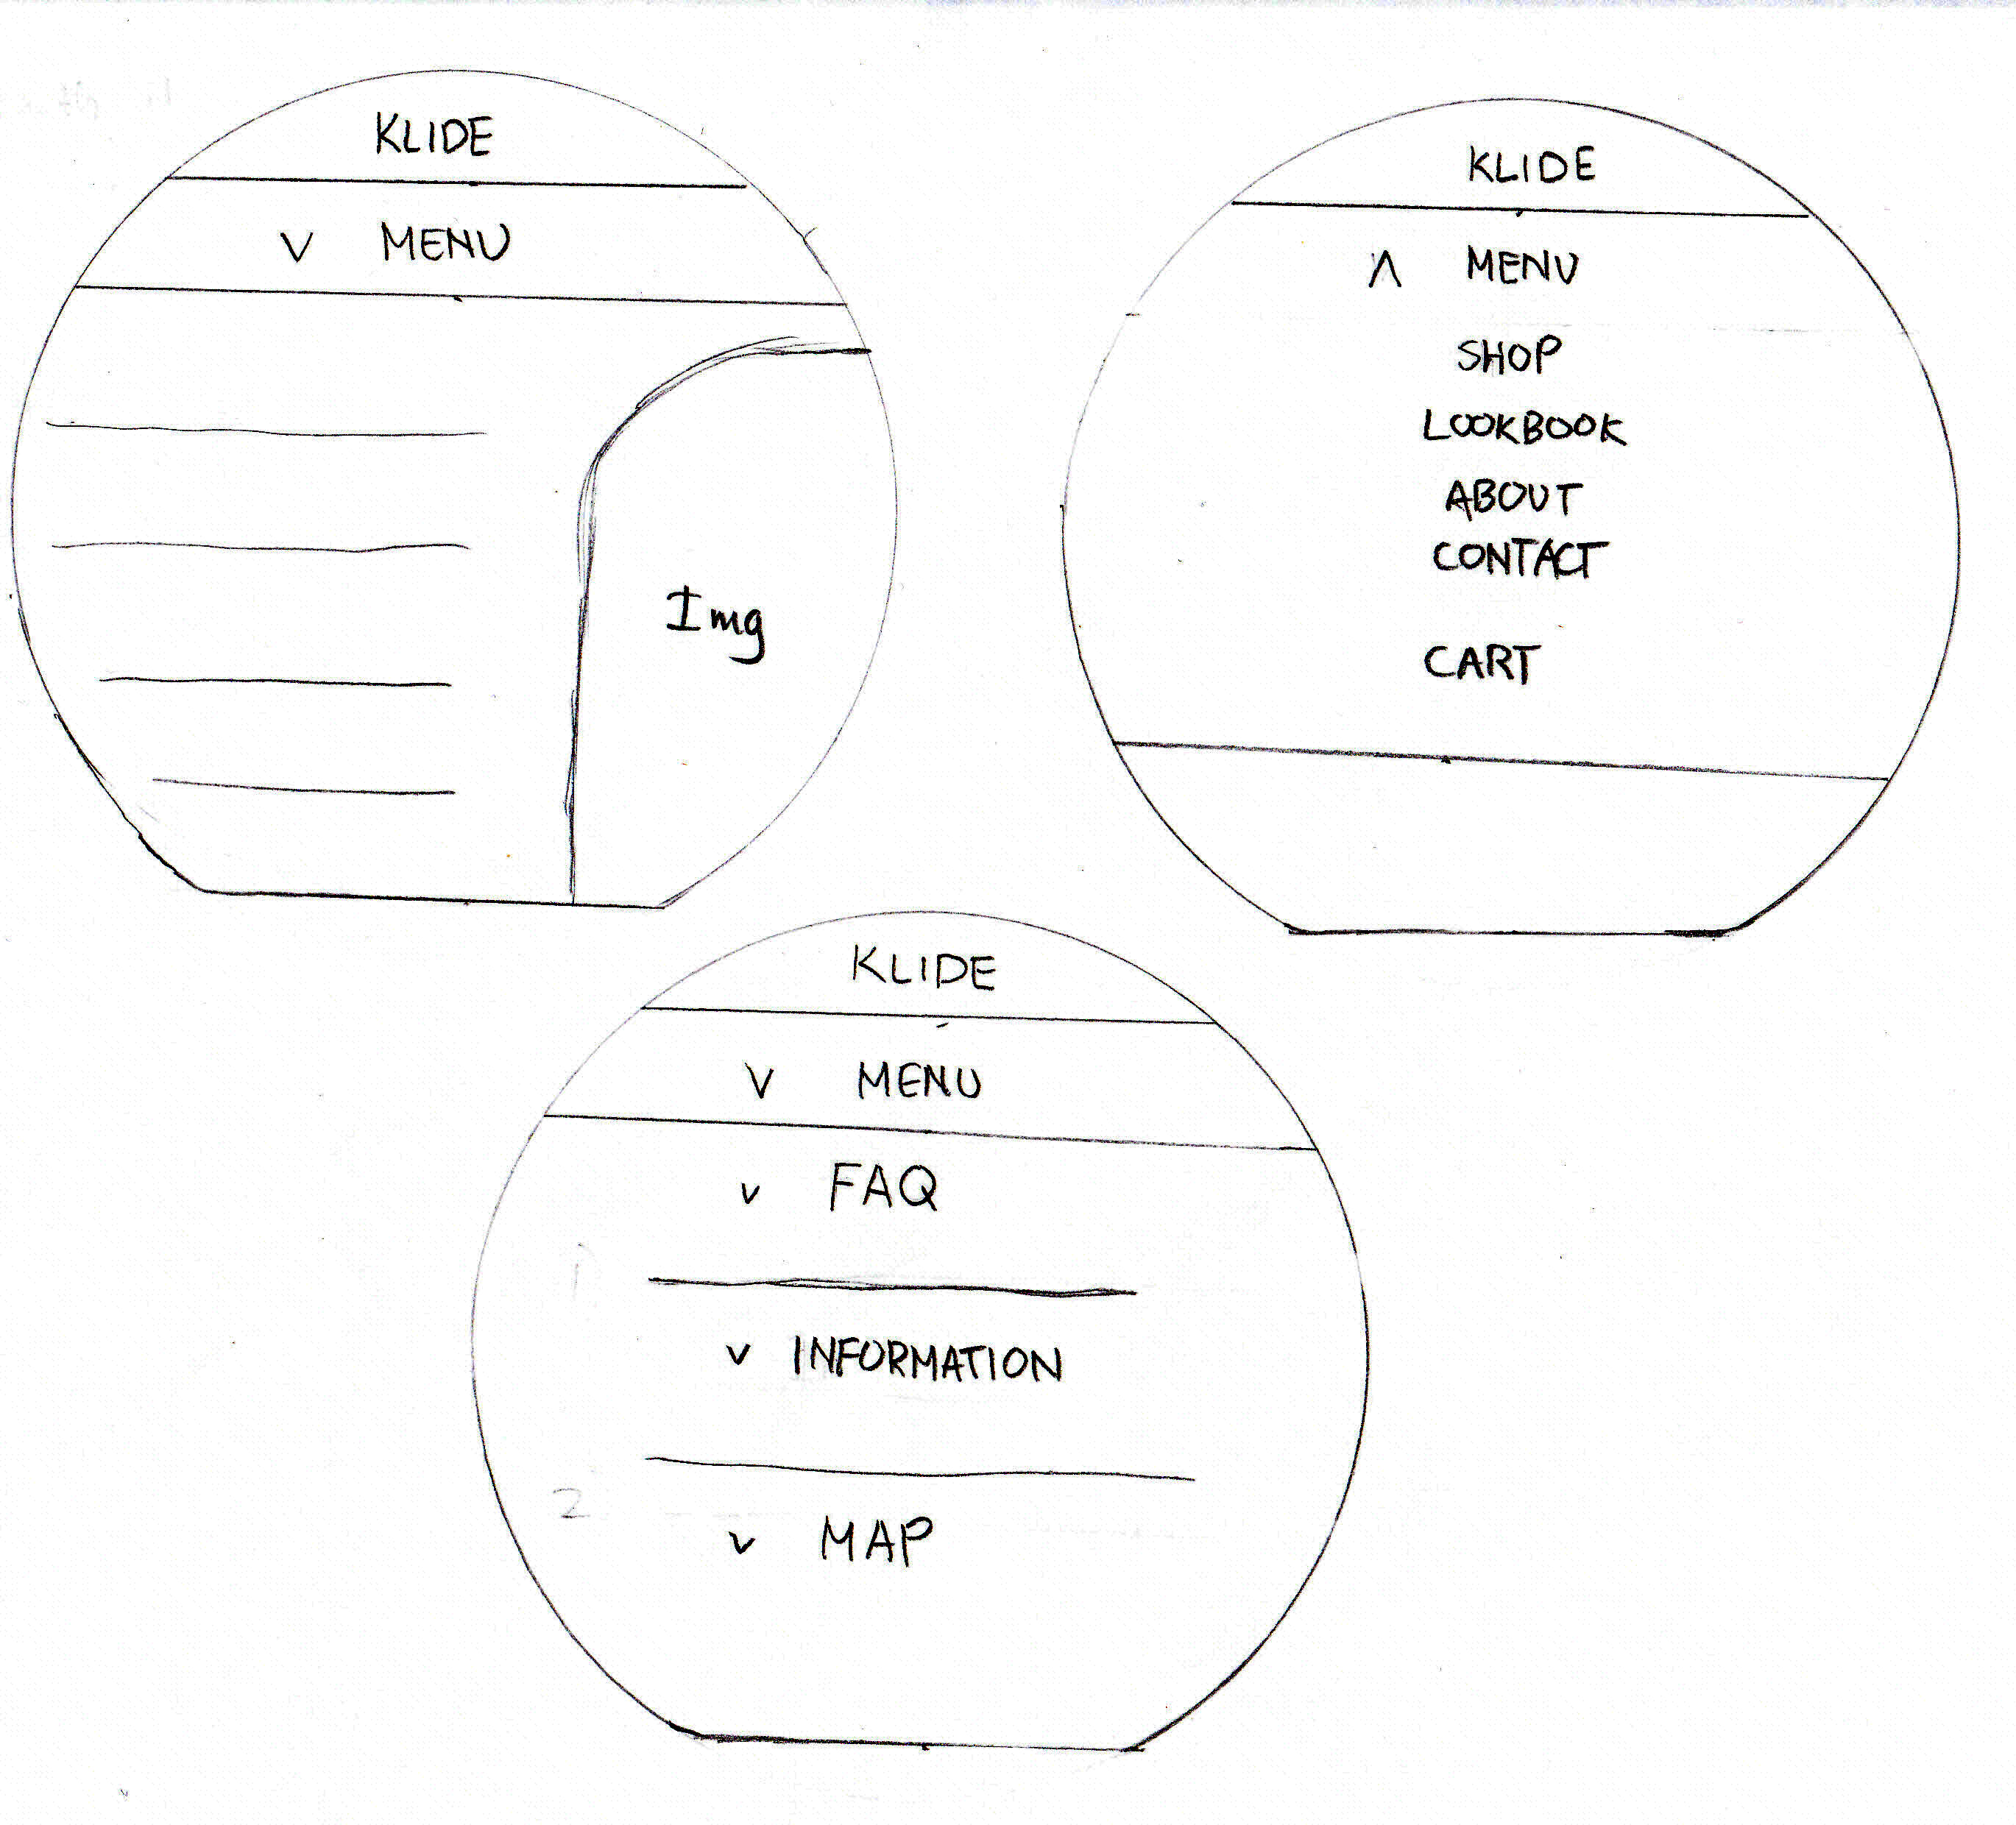 KLIDE
V MENU
Img
KLIDE
Λ MENU
SHOP
LOOKBOOK
ABOUT
CONTACT
CART
KLIDE
V MENU
v FAQ
1
v INFORMATION
2
v MAP